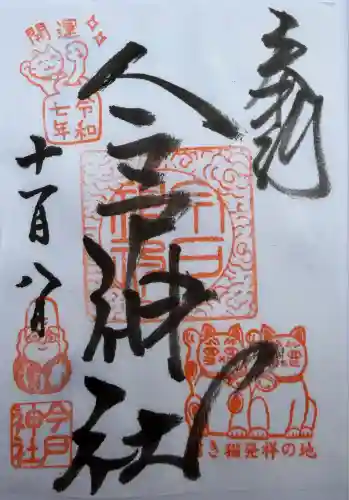 奉拝
今戸神社
開運
令和
七年
十一月八日
今戸
神社
招き猫発祥の地